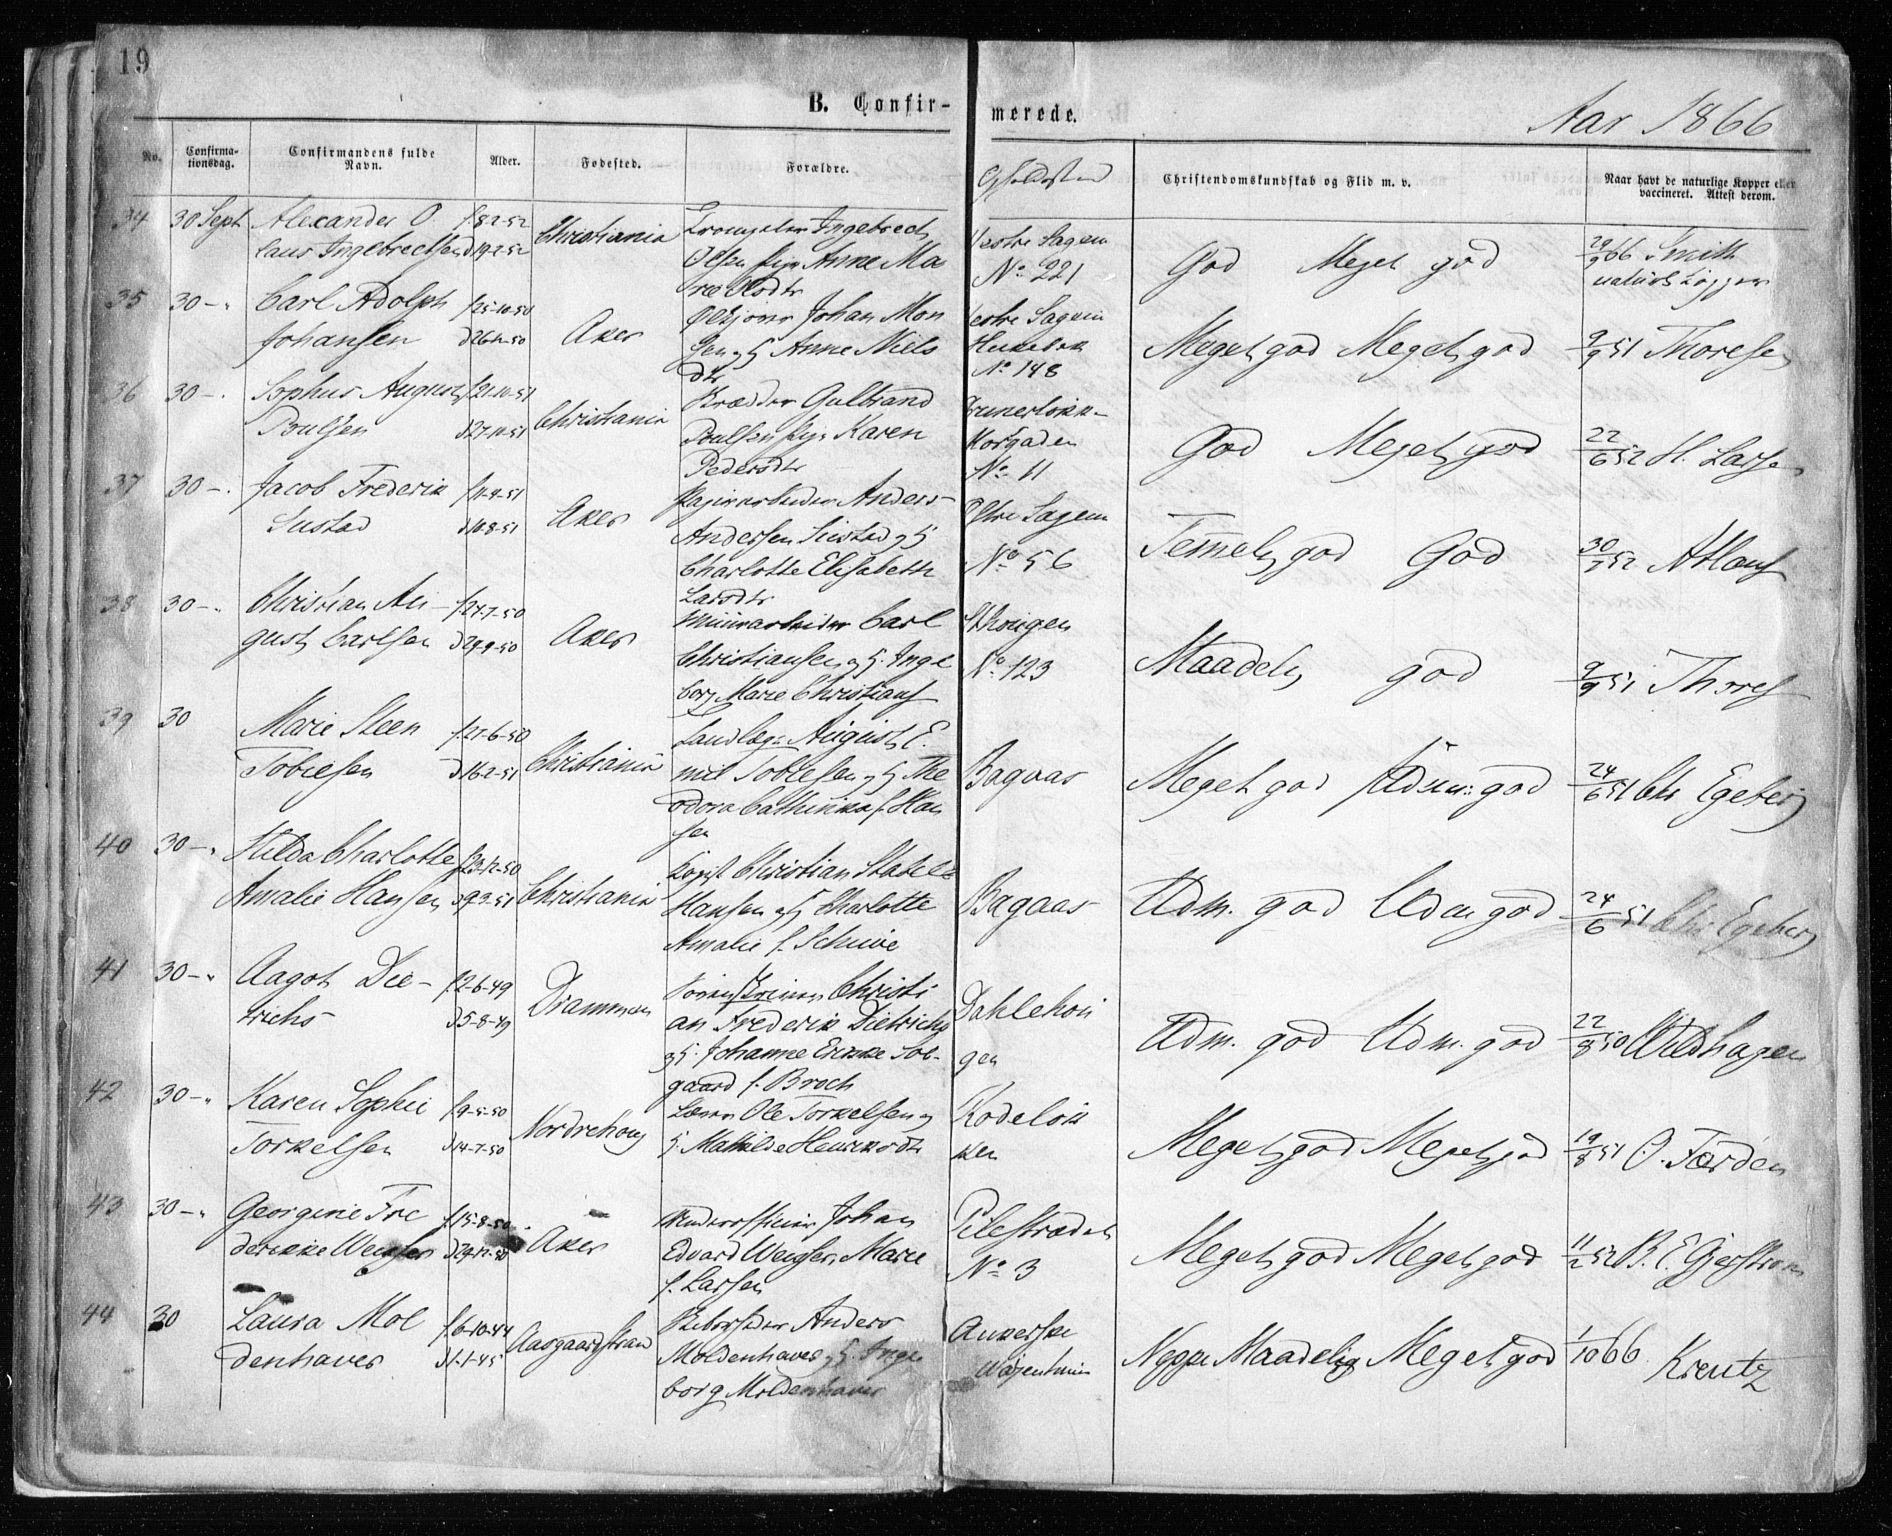 19
B. Confir-
merede.
Aar 1866
No.
Confirma-
tionsdag.
Confirmandens fulde
Navn.
Alder.
Fødested.
Forældre.
Opholdssted
Christendomskundskab og Flid m. v.
Naar havt de naturlige Kopper eller
vaccineret. Attest derom.
34 30 Sept Alexander O
laus Ingebrechtsen
f. 8-2-52
d 19-2-52
Christiania
Ingebrecht
Olsen Anne Ma
ræ Olsdtr
Vestre Sagene
No 221
God Meget god
29/9 66 Smith
35 30 -"
Carl Adolph
Johansen
f 25-10-50
d 26-12-50
Aker
Johan Mon
sen og H. Anne Niels
dtr
Vestre Sagene
No 148
Meget god Meget god
9/9 51 Thoresen
36 30 -"
Sophus August
Poulsen
f 21-10-51
d 27-11-51
Christiania
Gulbrand
Poulsen Karen
Pedersdtr
Grunerløkk-
Korsgaden
No 11
God Meget god
22/6 52 H. Larsen
37 30 -"
Jacob Frederik
Sustad
f 11-4-51
d 10-8-51
Aker
Anders
Andersen Sustad og H
Charlotte Elisabeth
Larsdtr
Østre Sagene
No 56
Temmelig god God
30/7 52
38 30 -"
Christian Au-
gust Carlsen
f 27-7-50
d 29-9-50
Aker
Muurarbeider Carl
Christiansen og H. Inge
borg Marie Christians
No 123
Maadelig god
9/9 51 Thores
39 30
Marie Steen
Tobiesen
f 27-6-50
d 16-2-51
Christiania
August E.
mil Tobiesen og H The
odora Cathinka f. Han
sen
Bagaas
Meget god Udm: god
24/6 51 Chr Egeberg
40 30 -"
Hilda Charlotte
Amalie Hansen
f 23-12-50
d 9-2-51
Christiania
Christian
Hansen og H Charlotte
Amalie f. Schive
Bagaas
Udm. god Udm god
24/6 51 Chr Egeberg
41 30 -"
Aagot Die-
trichs
f 2-6-49
d 5-8-49
Drammen
Christi
an Frederik Dietrichs
og H. Johanne Erikke Sol-
gaard f. Broch
Dahlehou
gen
Udm. god Udm. god
22/8 50 Wildhagen
42 30 -"
Karen Sophie
Torkelsen
f 9-5-50
d 14-7-50
Nordrehoug
Lærer Ole Torkelsen og
H. Mathilde Henriksdtr
Rodeløk
ken
Meget god Meget god
19/8 51 O. Tærden
43 30 -"
Georgine Fre
derikke
f 15-8-50
Aker
Underofficier Johan
Edvard Marie
f. Larsen
Pilestrædet
No 3
Meget god Meget god
11/2 52
44 30
Laura Mol
denhaver
f. 6-10-44
d 1-1-45
Aasgaardstrand
Anders
Moldenhaver og H Inge
borg Moldenhaver
Ankerske
Waisenhuus
Neppe Maadelig Meget god
1/10 66 Kreutz